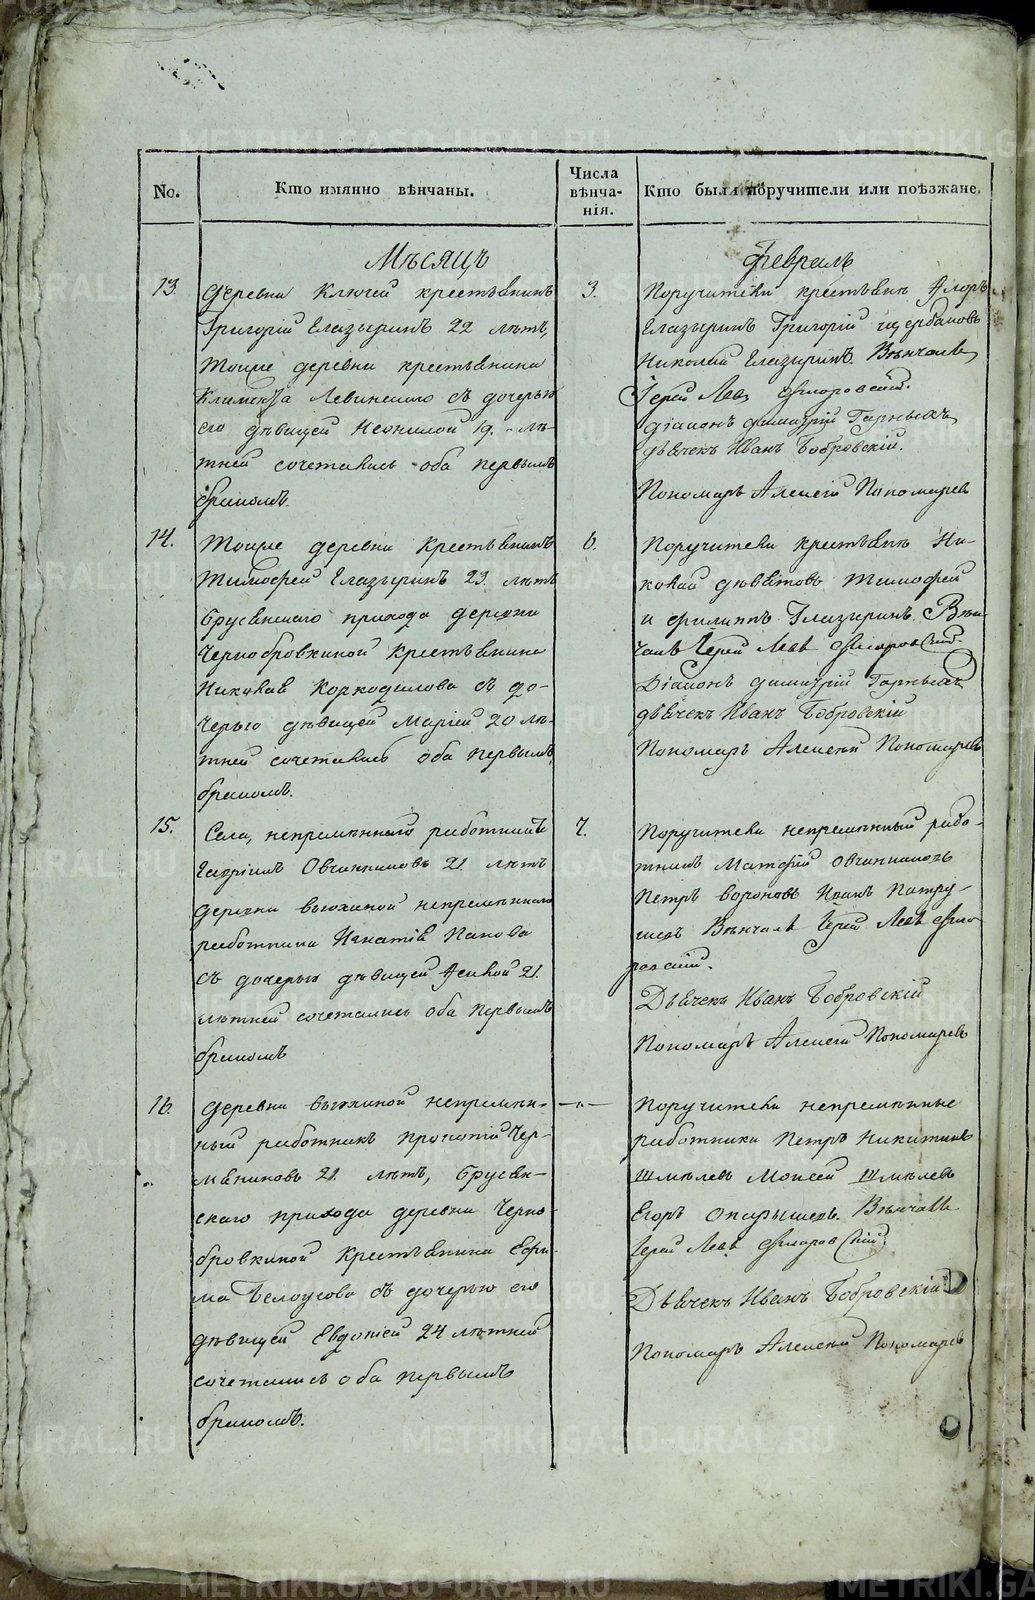 No.
Кто имянно вѣнчаны.
Числа
вѣнча-
нія.
Кто были поручители или поѣзжане.
Мѣсяцъ
Февраль
13.
деревни Ключей крестьянинъ
Григорій Глазыринъ 22 лѣтъ,
тоиже деревни крестьянина
Левинскаго съ дочерью
его дѣвицей Неонилой 19. лѣ-
тней сочетались оба первымъ
бракомъ.
3.
Поручители крестьяне
Глазыринъ Григорій Щербаковъ
Николай Глазыринъ. Вѣнчалъ
Іерей Левъ Флоровскій.
Діаконъ Димитрій Гарныхъ
дьячекъ Иванъ Бобровскій.
Пономарь Алексій Пономаревъ
14.
Тоиже деревни крестьянинъ
Тимофей Глазыринъ 23. лѣтъ
Брусянскаго прихода деревни
Чернобровкиной крестьянина
Николая Коркодилова съ до-
черью дѣвицей Маріей 20 лѣ-
тней сочетались оба первымъ
бракомъ.
6.
Поручители крестьяне Ни-
колай Тимофей
и Филиппъ Глазырины. Вѣн-
чалъ Іерей Левъ Флоровскій.
Діаконъ Димитрій Гарныхъ
дьячекъ Иванъ Бобровскій
Пономарь Алексей Пономаревъ
15.
Села, непремѣнный работникъ
Гавріилъ Овчинниковъ 21. лѣтъ
деревни Вьюхиной непремѣннаго
работника Игнатія Панова
съ дочерью дѣвицей 21.
лѣтней сочетались оба первымъ
бракомъ
7.
Поручители непремѣнный рабо-
тникъ Матфей Овчинниковъ
Петръ Вороновъ Иванъ Патру-
шевъ Вѣнчалъ Іерей Левъ Фло-
ровскій.
Дьячекъ Иванъ Бобровскій
Пономарь Алексій Пономаревъ
16.
деревни Вьюхиной непремѣн-
ный работникъ Прокопій Чер-
мяниновъ 21. лѣтъ, Брусян-
скаго прихода деревни Черно-
бровкиной крестьянина Ефи-
ма Белоусова съ дочерью его
дѣвицей Евдокіей 24 лѣтней
сочетались оба первымъ
бракомъ.
—„—
Поручители непремѣнные
работники Петръ Никитинъ
Шмѣлевъ Моисей Шмѣлевъ
Егоръ Опарышевъ. Вѣнчалъ
Іерей Левъ Флоровскій.
Дьячекъ Иванъ Бобровскій
Пономарь Алексей Пономаревъ
METRIKI.GASO-URAL.RU